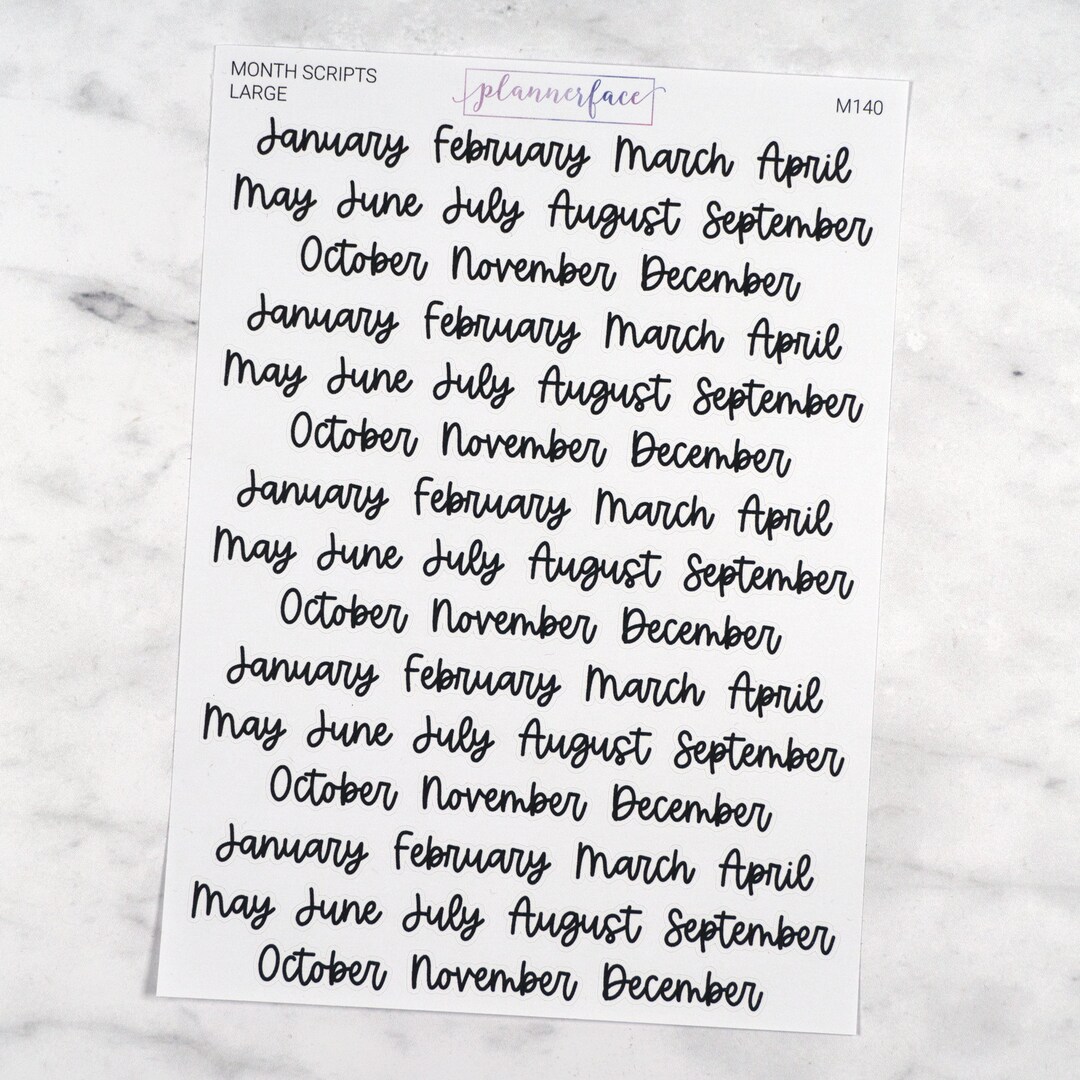 MONTH SCRIPTS
LARGE
plannerface
M140
January February March April
May June July August September
October November December
January February March April
May June July August September
October November December
January February March April
May June July August September
October November December
January February March April
May June July August September
October November December
January February March April
May June July August September
October November December